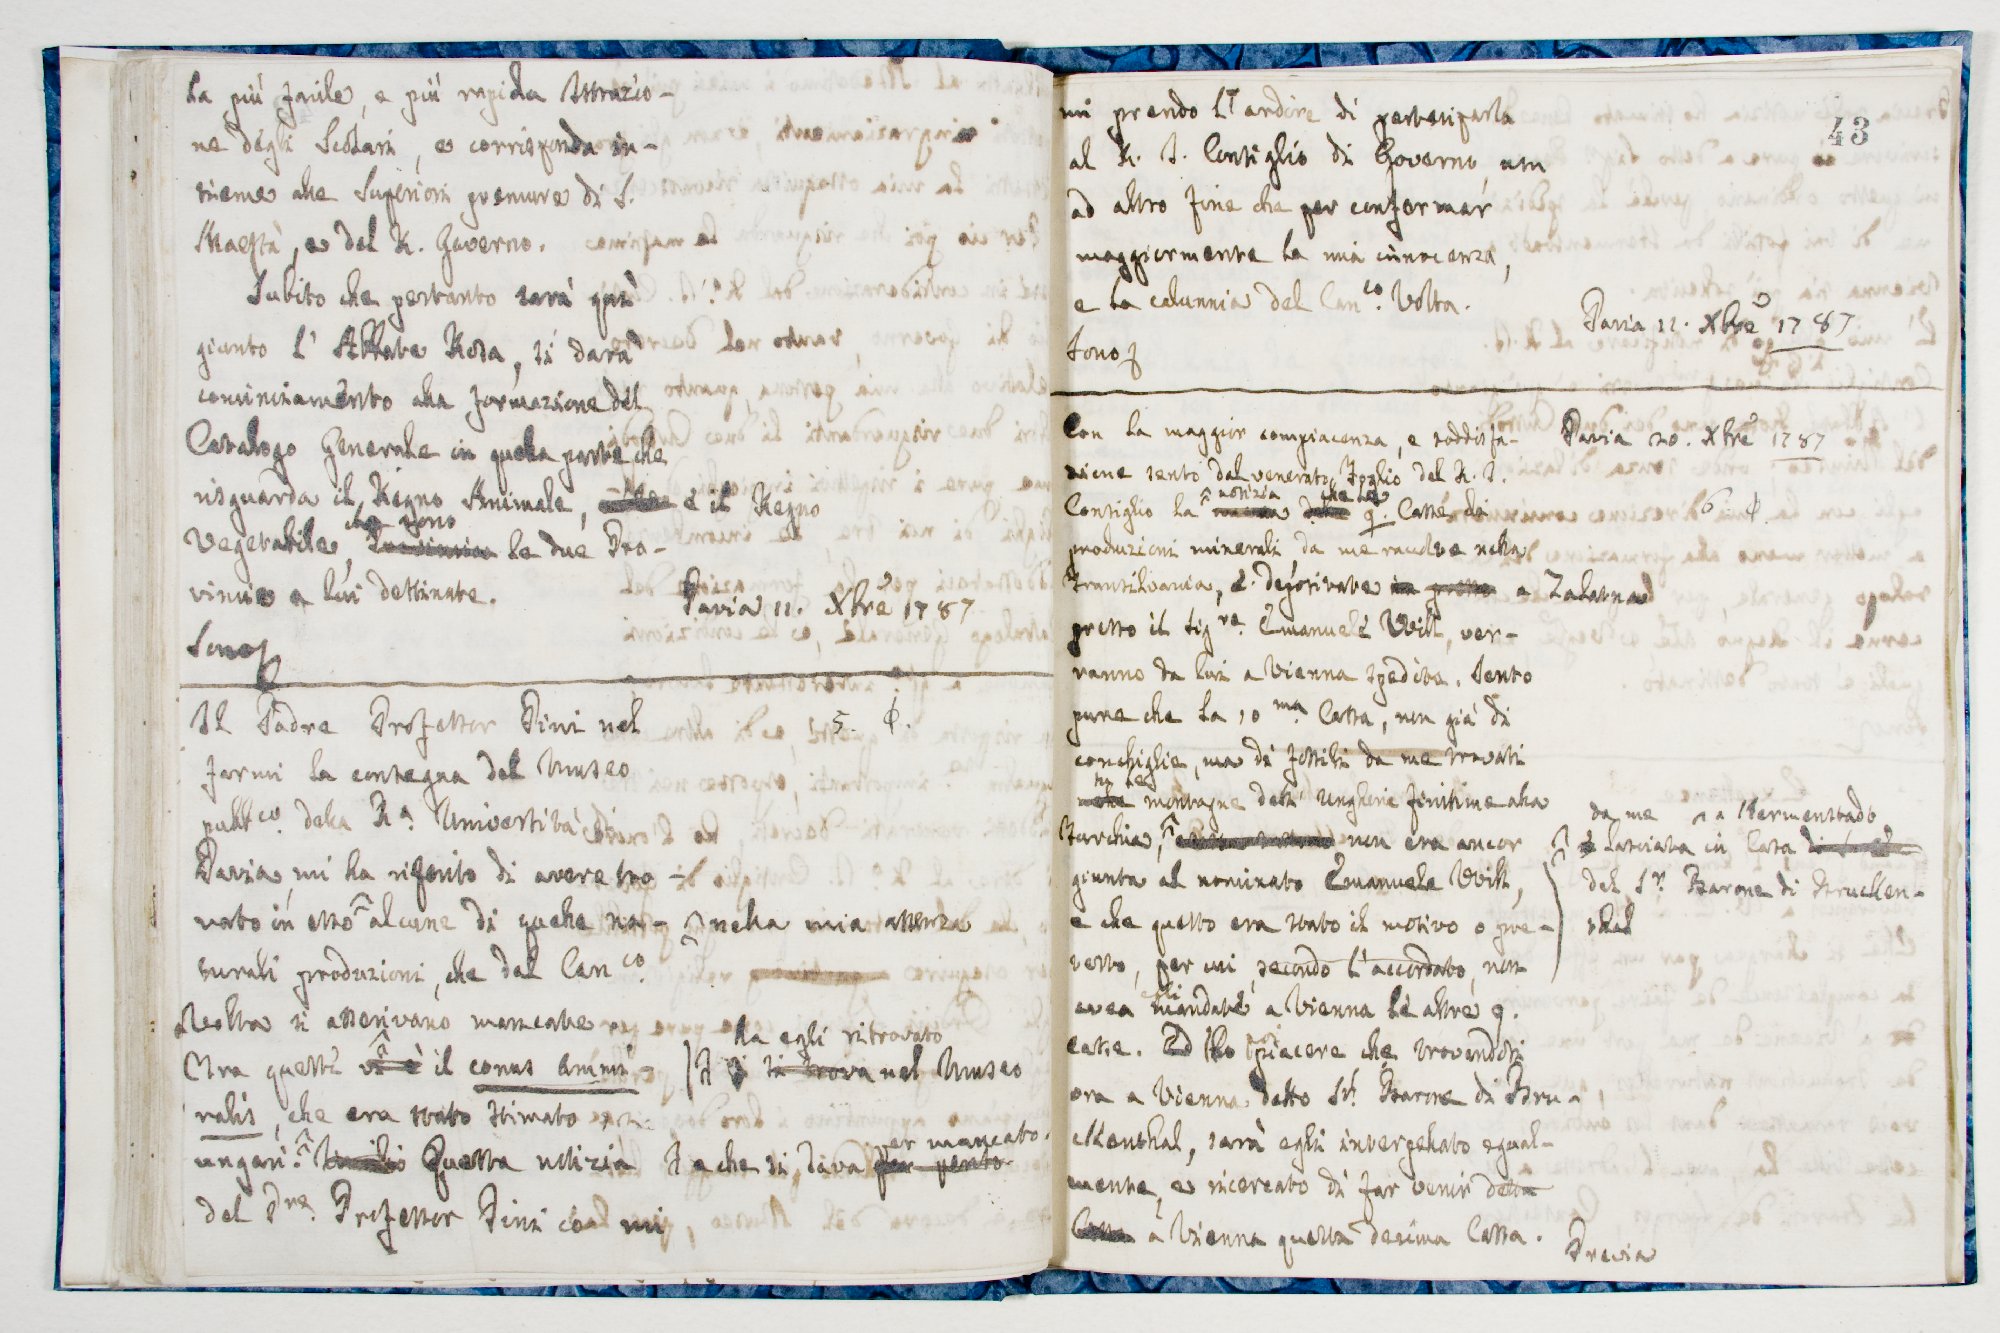 la più facile, e più rapida Istruzio-
ne degli Scolari, e corrisponda in-
sieme alle Superiori premure di S.
Maestà, e del R. Governo.
Subito che pertanto sarà quì
giunto l'Abbate Rosa, si darà
cominciamento alla formazione del
Catalogo Generale in quella parte che
risguarda il Regno Animale, e il Regno
che sono
Vegetabile, le due Pro-
vincie a lui destinate.
Pavia 11. Xbre 1787
Sono
Il Padre Professor Pini nel
5.
farmi la consegna del Museo
pubbco. della Ra. Università di
Pavia, mi ha riferito di avere tro-
vato in esso alcune di quelle na-
nella mia assenza
turali produzioni, che dal Canco.
Volta si asserivano mancate.
ha egli ritrovato
Tra questi vi è il conus ammi-
si trova nel Museo
ralis, che era stato stimato
ungari. Questa notizia
e che si dava per perito
per mancato.
del Pre. Professor Pini così mi
43
mi prendo l'ardire di parteciparla
al R. I. Consiglio di Governo, non
ad altro fine che per confermar
maggiormente la mia innocenza,
e la calunnia del Canco. Volta.
Pavia 11. Xbre 1787
Sono
Con la maggior compiacenza, e soddisfa-
Pavia 20. Xbre 1787
zione sento dal venerato Foglio del R. I.
notizia che le
Consiglio la 9. Casse di
6.
produzioni minerali da me raccolte nella
Transilvania, e depositate a Zalatna
presso il Sigre. Emanuele Will, ver-
ranno da lui a Vienna spedite. Sento
pure che la 10ma. Cassa, non già di
conchiglie, ma di fossili da me trovati
montagne dell'Ungheria finitime alla
da me a Hermenstadt
Turchia, non era ancor
lasciata in Casa
giunta al nominato Emanuele Will,
del Sr. Barone di Bruchen-
e che questo era stato il motivo o pre-
thal
testo, per cui, secondo l'accordato, non
avea mandate a Vienna le altre 9.
casse. Ed ho piacere che trovandosi
ora a Vienna detto Sr. Barone di Bru-
ckenthal, sarà egli interpellato egual-
mente, e ricercato di far venir detta
Cassa a Vienna questa decima Cassa.
Precia